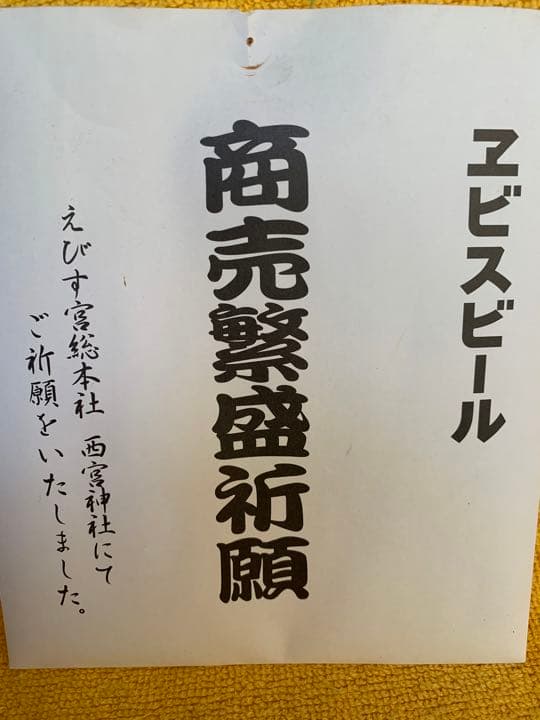 ヱビスビール
商売繁盛祈願
えびす宮総本社 西宮神社にて
ご祈願をいたしました。